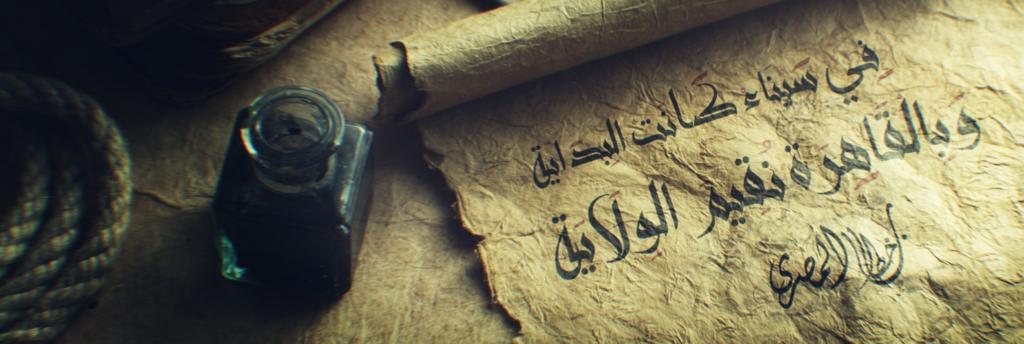 في سيناء كانت البداية
وبالقاهرة نقيم الولاية
المصري